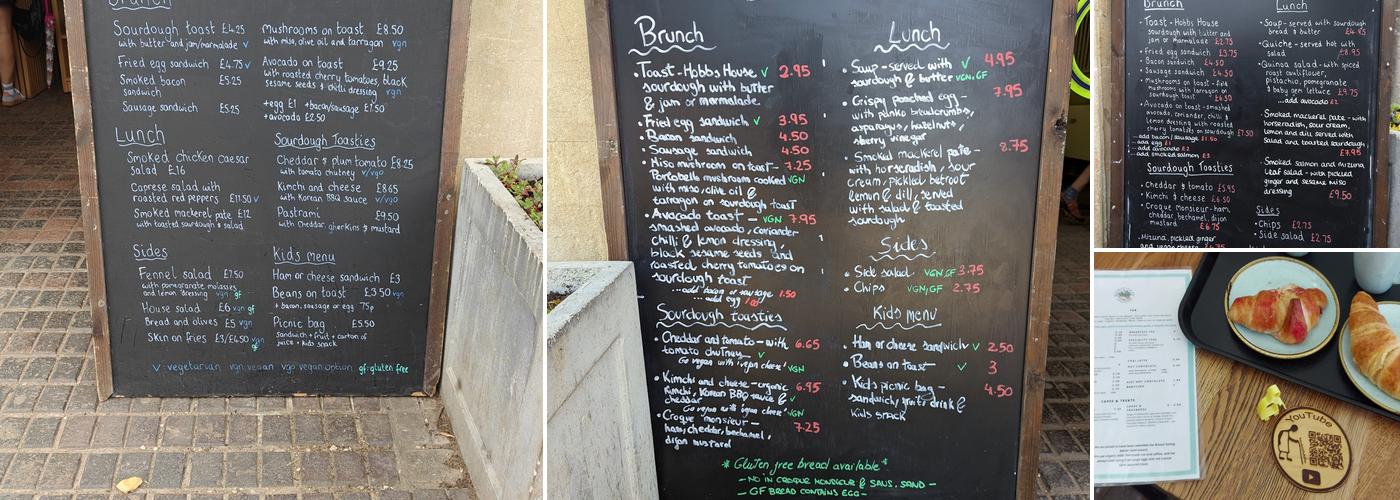 Brunch
Sourdough toast £4.25
with butter and jam/marmalade v
Fried egg sandwich £4.75 v
Smoked bacon £5.25
sandwich
Sausage sandwich £5.25
Mushrooms on toast £8.50
with miso, olive oil and tarragon vgn
Avocado on toast £9.25
with roasted cherry tomatoes, black
sesame seeds & chilli dressing vgn
+egg £1 +bacon/sausage £1.50
+avocado £2.50
Lunch
Smoked chicken caesar
salad £16
Caprese salad with
roasted red peppers £11.50 v
Smoked mackerel pate £12
with toasted sourdough & salad
Sourdough Toasties
Cheddar & plum tomato £8.25
with tomato chutney v/vgo
Kimchi and cheese £8.65
with Korean BBQ sauce v/vgo
Pastrami £9.50
with Cheddar gherkins & mustard
Sides
Fennel salad £7.50
with pomegranate molasses
and lemon dressing vgn gf
House salad £6 vgn gf
Bread and olives £5 vgn
Skin on fries £3/£4.50 vgn
gf
Kids menu
Ham or cheese sandwich £3
Beans on toast £3.50 vgn
+ bacon, sausage or egg 75p
Picnic bag £5.50
sandwich + fruit + carton of
juice + kids snack
v: vegetarian vgn: vegan vgo vegan option gf: gluten free
Brunch
• Toast - Hobbs House v 2.95
sourdough with butter
& jam or marmalade
• Fried egg sandwich v 3.95
• Bacon sandwich 4.50
• Sausage sandwich 4.50
• Miso mushroom on toast - 7.25
Portobello mushroom cooked VGN
with miso, olive oil &
tarragon on sourdough toast
• Avocado toast - VGN 7.95
smashed avocado, coriander
chilli & lemon dressing,
black sesame seeds and
roasted cherry tomatoes on
sourdough toast
...add bacon or sausage 1.50
...add egg 1.00
Sourdough toasties
• Cheddar and tomato - with 6.65
tomato chutney v
Go vegan with vegan cheese! VGN
• Kimchi and cheese - organic 6.95
kimchi, Korean BBQ sauce &
cheddar v
Go vegan with vegan cheese! VGN
• Croque monsieur - 7.25
ham, cheddar, bechamel,
dijon mustard
Lunch
• Soup - served with v 4.95
sourdough & butter VGN, GF
• Crispy poached egg - 7.95
with panko breadcrumbs,
asparagus, hazelnuts,
sherry vinegar
• Smoked mackerel pate - 8.75
with horseradish, sour
cream, pickled betroot
lemon & dill, served
with salad & toasted
sourdough
Sides
• Side salad VGN, GF 3.75
• Chips VGN, GF 2.75
Kids menu
• Ham or cheese sandwich v 2.50
• Beans on toast v 3
• Kids picnic bag - 4.50
sandwich, fruit, drink &
kids snack
* Gluten free bread available *
- NO IN CROQUE MONSIEUR & SAUS. SAND -
- GF BREAD CONTAINS EGG -
Brunch
• Toast - Hobbs House
sourdough with butter and
jam or marmalade £2.75
• Fried egg sandwich £3.75
• Bacon sandwich £4.50
• Sausage sandwich £4.50
• Mushrooms on toast -
mushrooms with tarragon on
sourdough toast £6.50
• Avocado on toast - smashed
avocado, coriander, chilli &
lemon dressing with roasted
cherry tomatoes on sourdough £7.50
...add bacon/sausage £1.50
...add egg £1
...add avocado £2
...add smoked salmon £3
Sourdough Toasties
• Cheddar & tomato £5.95
• Kimchi & cheese £6.50
• Croque monsieur - ham,
cheddar, bechamel, dijon
mustard £6.75
Mizuna, pickled ginger
Lunch
• Soup - served with sourdough
bread & butter £4.95
• Quiche - served hot with
salad £8.95
• Quinoa salad - with spiced
roast cauliflower,
pistachio, pomegranate
& baby gem lettuce £9.75
...add avocado £2
• Smoked mackerel pate - with
horseradish, sour cream,
lemon and dill served with
salad and toasted sourdough
£7.95
• Smoked salmon and mizuna
salad - with pickled
ginger and sesame miso
dressing £9.50
Sides
• Chips £2.75
• Side salad £2.75
YouTube